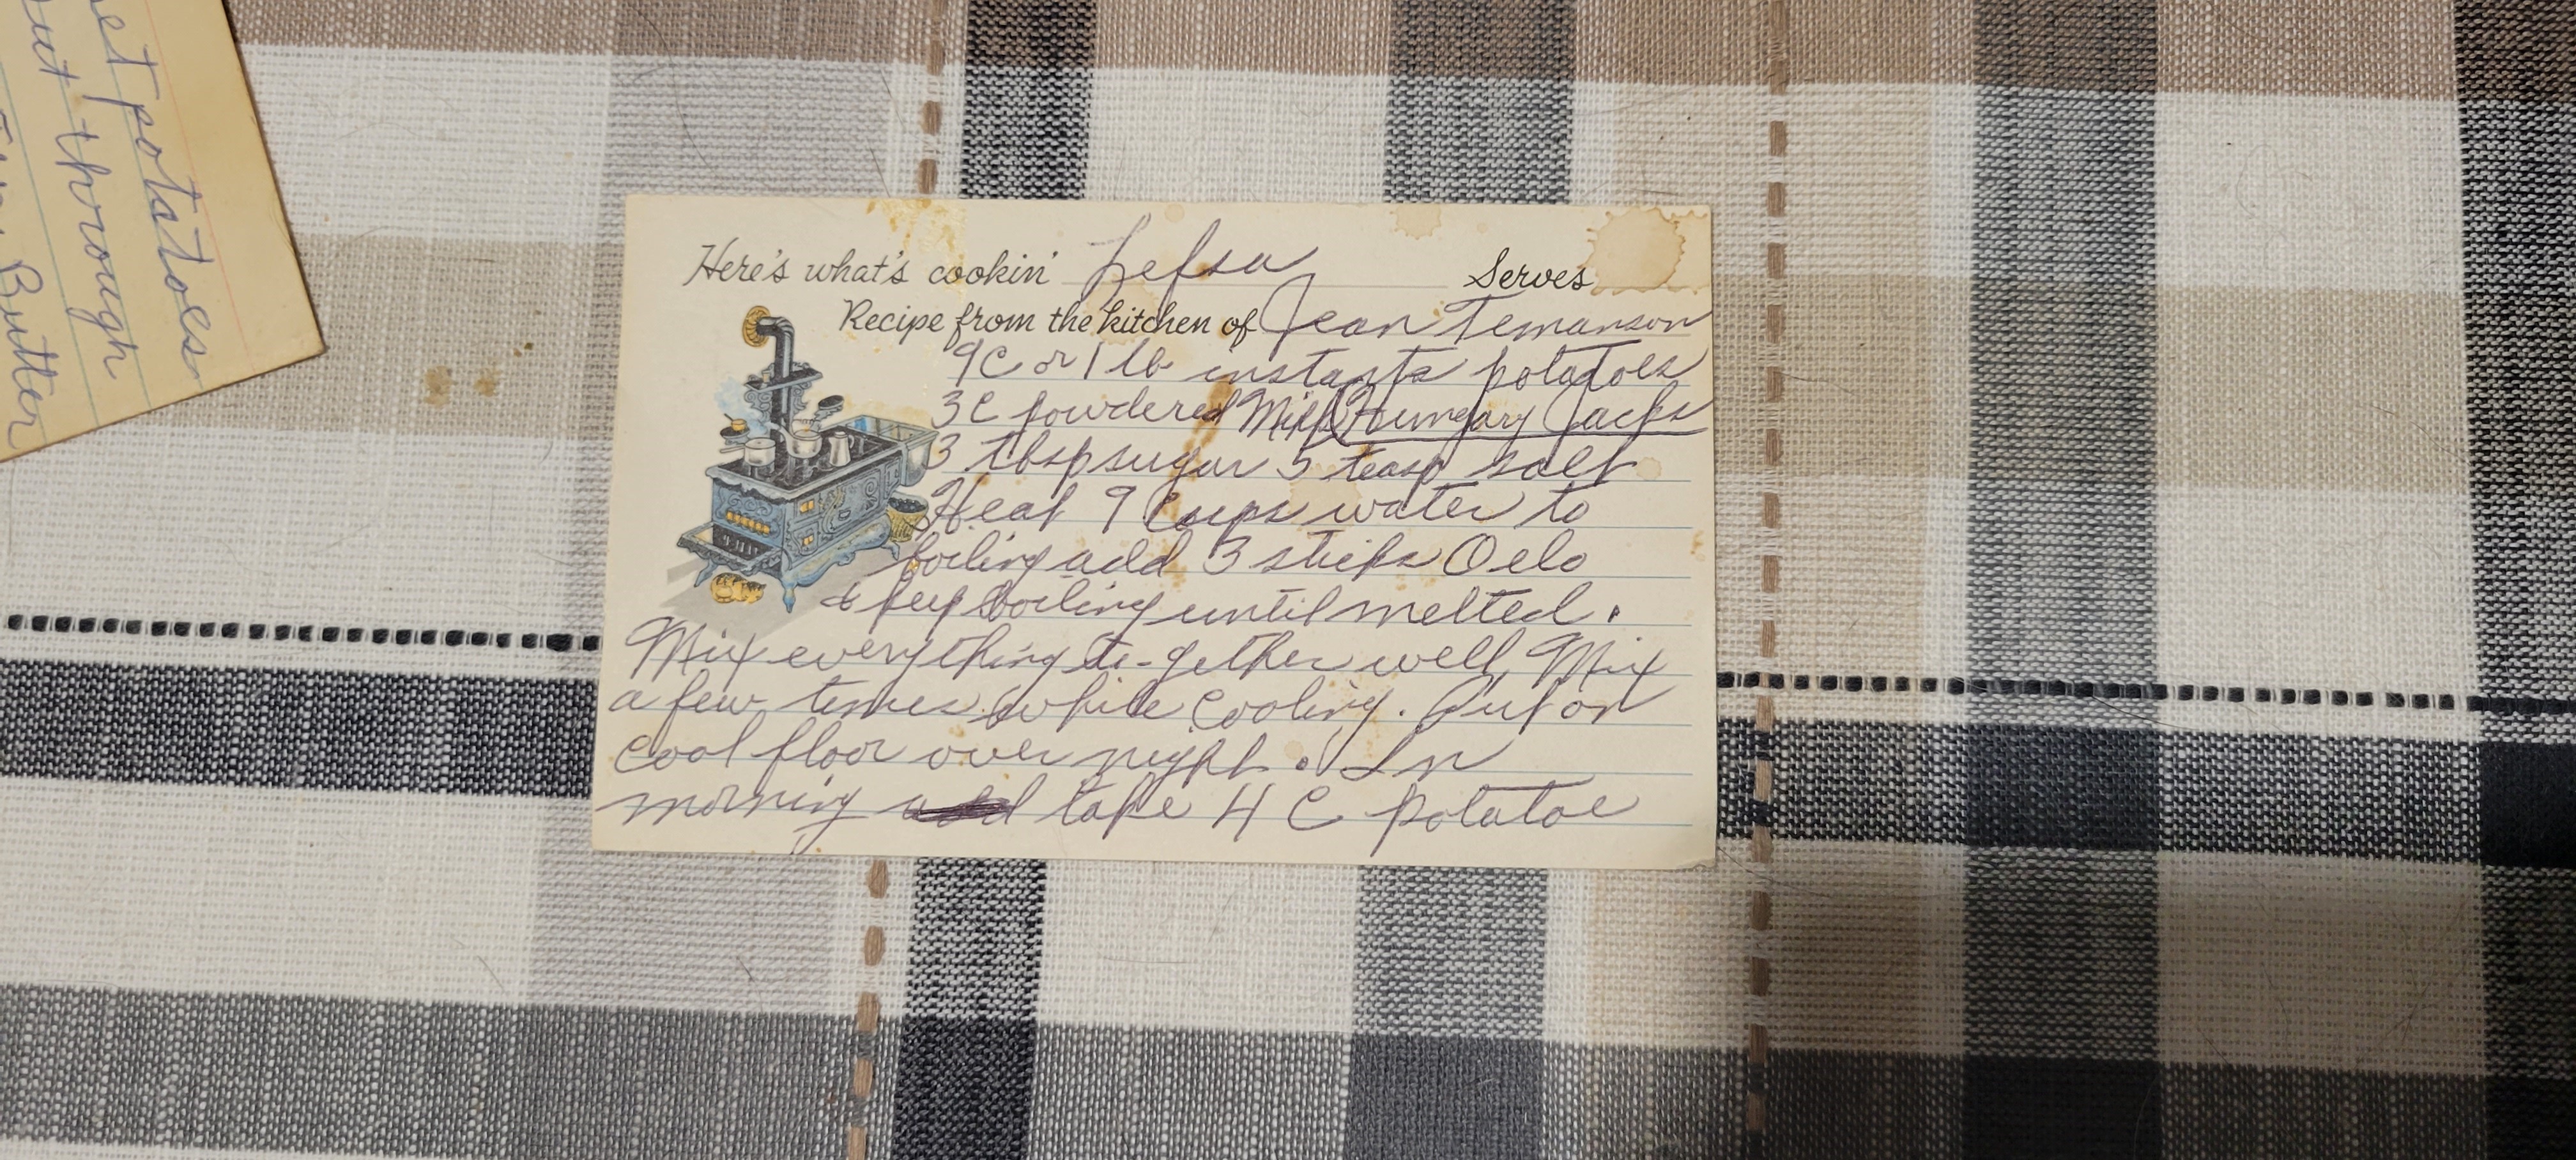 et potatoes
put through
Butter
Here's what's cookin' Lefsa Serves
Recipe from the kitchen of Jean Temanson
9C or 1 lb instants potatoes
3C powdered Milk Hungary Jacks
3 tbsp sugar 5 teasp salt
Heat 9 Cups water to
boiling add 3 sticks Oelo
& keep boiling until melted.
Mix everything to-gether well, Mix
a few times while Cooling. Put on
cool floor over night. In
morning take 4 C potatoe